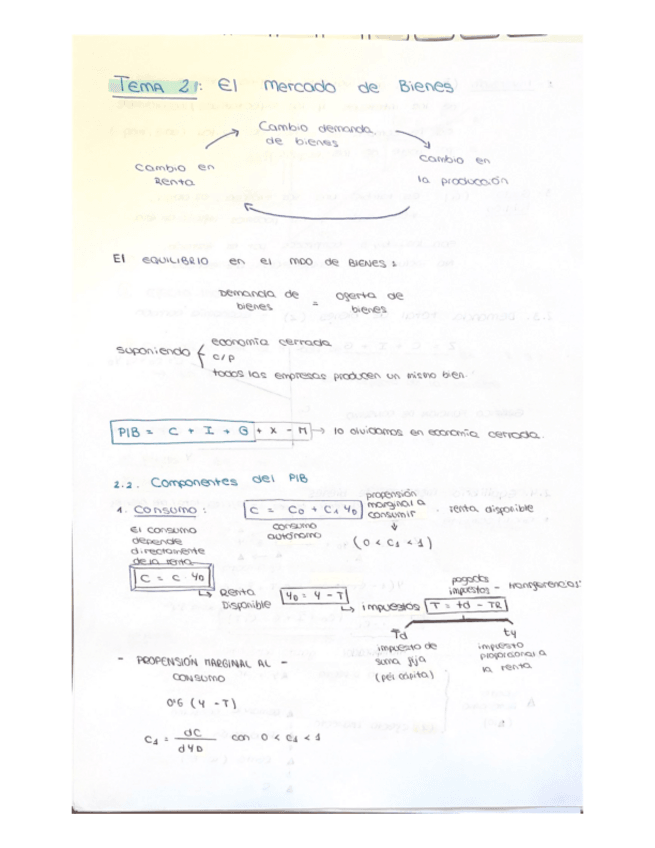 TEMA 2: El mercado de Bienes
Cambio demanda
de bienes
cambio en
la producción
cambio en
Renta
El EQUILIBRIO en el MDO de BIENES:
Demanda de bienes = oferta de bienes
suponiendo
economía cerrada
c/p
todas las empresas producen un mismo bien.
PIB = C + I + G + X - M → lo olvidamos en economía cerrada.
2.2. Componentes del PIB
1. Consumo:
C = C0 + C1 YD
propensión
marginal a
consumir
(0 < C1 < 1)
. renta disponible
consumo
autónomo
El consumo
depende
directamente
de la renta
C = C YD
Renta
Disponible
YD = Y - T
impuestos
pagados
impuestos - transferencias
T = td - TR
Td
impuesto de
suma fija
(per cápita)
ty
impuesto
proporcional a
la renta
- PROPENSIÓN MARGINAL AL -
CONSUMO
0'6 (Y - T)
C1 = dC / dYD con 0 < C1 < 1